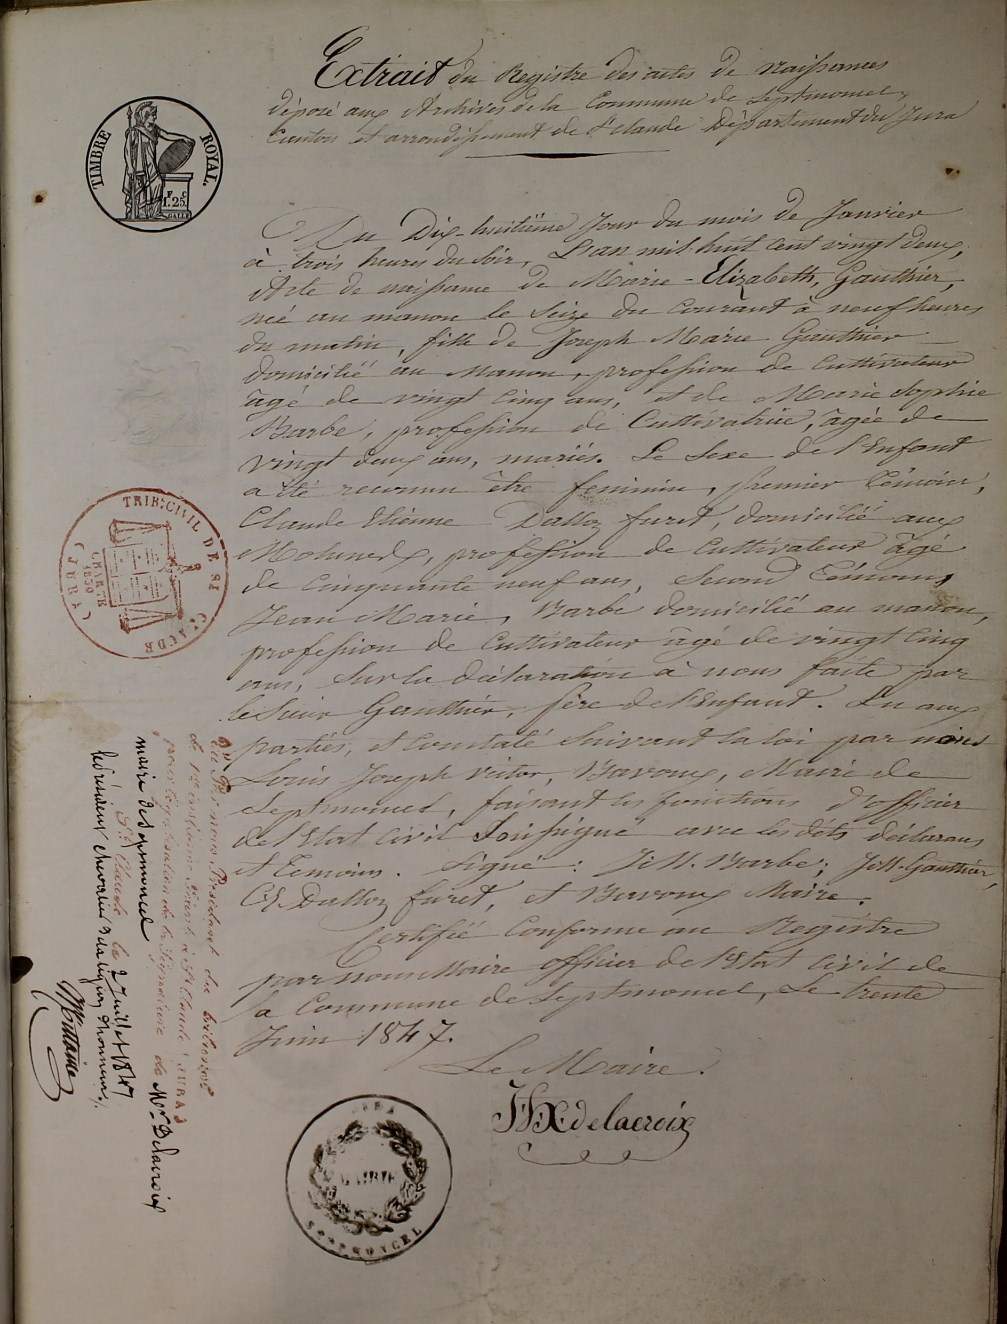 Extrait du Registre des actes de naissances
déposé aux Archives de la Commune de Septmoncel,
Canton et arrondissement de St Claude Département du Jura
TIMBRE ROYAL.
F. C.
1.25.
GALLE
Du Dix-huitième Jour du mois de Janvier
à trois heures du Soir, L'an mil huit cent vingt deux,
Acte de naissance de Marie-Elizabeth, Gauthier,
né au manon le Seize du Courant à neuf heures
du matin, fille de Joseph Marie Gauthier
domicilié au Manon, profession de Cultivateur
âgé de vingt Cinq ans, et de Marie Sophie
Barbe, profession de Cultivatrice, âgée de
vingt deux ans, mariés. Le Sexe de l'Enfant
a été reconnu être feminin, premier Témoin,
Claude Etienne Dalloz furet, domicilié aux
profession de Cultivateur âgé
de Cinquante neuf ans, Second Témoins
Jean Marie, Barbe domicilié au manon,
profession de Cultivateur âgé de vingt Cinq
ans, Sur la déclaration à nous faite par
le Sieur Gauthier, père de l'Enfant. Lu aux
parties, et Constaté Suivant la loi par nous
Louis Joseph victor, Bavoux, Maire de
Septmoncel, faisant les fonctions d'officier
de l'Etat Civil Soussigné avec les dits déclarans
et Témoins. Signé: J. M. Barbe; J. M. Gauthier,
C. E. Dalloz furet, et Bavoux Maire.
Certifié Conforme au Registre
par nous Maire officier de l'Etat Civil de
la Commune de Septmoncel, Le trente
Juin 1847.
Le Maire.
Delacroix
TRIB: CIVIL DE ST CLAUDE
(JURA)
CHARTE
1830
Vu Pr nous Président du tribunal
de 1re instance séant à St Claude (JURA)
pour légalisation de la Signature de Mr Delacroix
maire de Septmoncel
St Claude le 2 Juillet 1847
le président chevalier de la légion d'honneur
JURA
MAIRIE
SEPTMONCEL